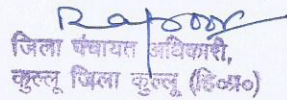 जिला पंचायत अधिकारी,
कुल्लू जिला कुल्लू (हि०प्र०)